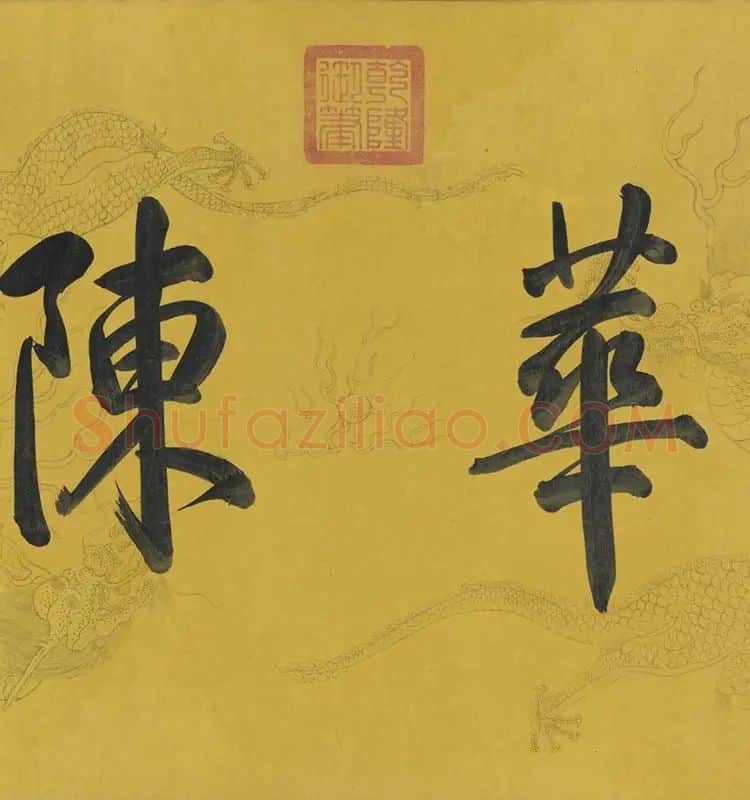 乾隆御筆
華陳
Shufaziliao.COM